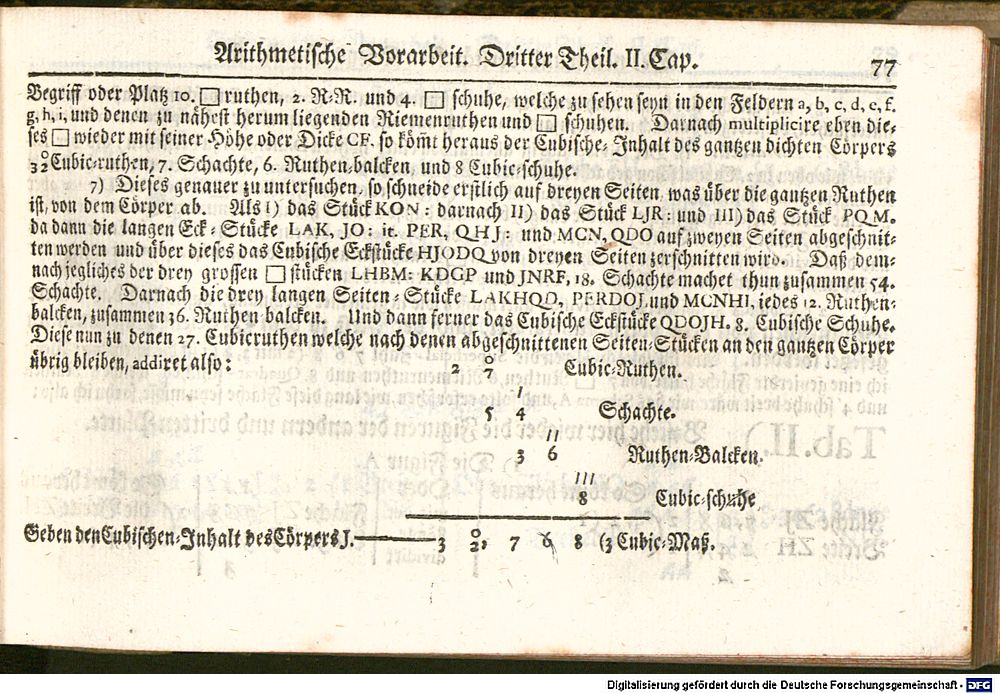 Arithmetische Vorarbeit. Dritter Theil. II. Cap. 77
Begriff oder Platz 10. □ ruthen, 2. R-R. und 4. □ schuhe, welche zu sehen seyn in den Feldern a, b, c, d, e, f,
g, h, i, und denen zu nähest herum liegenden Riemenruthen und □ schuhen. Darnach multiplicire eben die-
ses □ wieder mit seiner Höhe oder Dicke CF. so kömt heraus der Cubische-Inhalt des gantzen dichten Cörpers
32 Cubic-ruthen, 7. Schachte, 6. Ruthen-balcken, und 8 Cubic-schuhe.
7) Dieses genauer zu untersuchen, so schneide erstlich auf dreyen Seiten, was über die gantzen Ruthen
ist, von dem Cörper ab. Als I) das Stück KON: darnach II) das Stück LJR: und III) das Stück PQM.
da dann die langen Eck-Stücke LAK, JO: it. PER, QHJ: und MCN, QDO auf zweyen Seiten abgeschnit-
ten werden und über dieses das Cubische Eckstücke HJODQ von dreyen Seiten zerschnitten wird. Daß dem-
nach jegliches der drey grossen □ stücken LHBM: KDGP und JNRF, 18. Schachte machet thun zusammen 54.
Schachte. Darnach die drey langen Seiten-Stücke LAKHQD, PERDOJ und MCNHI, iedes 12. Ruthen-
balcken, zusammen 36. Ruthen balcken. Und dann ferner das Cubische Eckstücke QDOJH. 8. Cubische Schuhe.
Diese nun zu denen 27. Cubicruthen welche nach denen abgeschnittenen Seiten-Stücken an den gantzen Cörper
übrig bleiben, addiret also: 2 7 Cubic-Ruthen.
5 4 Schachte.
3 6 Ruthen-Balcken.
8 Cubic-schuhe
Geben den Cubischen-Inhalt des Cörpers J. 3 2, 7 6 8 (3 Cubic-Maß.
Digitalisierung gefördert durch die Deutsche Forschungsgemeinschaft - DFG